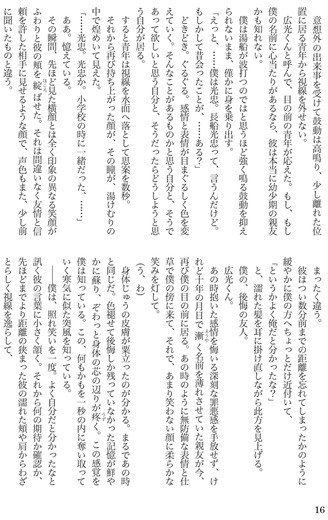 意想外の出来事を受けて鼓動は高鳴り、少し離れた位
置に居る青年から視線を外せない。
広光くんと呼んで、目の前の青年が応えた。もし、もし
僕の名前に心当たりがあるなら、彼は本当に幼少期の親友
かも知れない。
僕は湯船が波打つのではと思うほど強く鳴る鼓動を抑え
られないまま、僅かに身を乗り出す。
「えっと、……僕は光忠。長船光忠って、言うんだけど。
もしかして昔会ったことが、……ある？」
どきどき、ぐるぐる。感情と表情が目まぐるしく色を変
えていく。そんなことがあるものかと思う自分と、そうで
あって欲しいと思う自分と、そうだったらどうしようと思
う自分が居る。
すると青年は視線を水面へ落として思案を数秒。
それから再び持ち上がった顔が、その瞳が、湯けむりの
中で煌めいて見えた。
「……光忠。光忠か、小学校の時に一緒だった、……」
ああ、憶えている。
その瞬間、先ほど見た横顔とは全く印象の異なる笑顔が
ふわりと彼の頬を綻ばせた。それは間違いなく友情と信
頼を許した相手に見せるような顔で、声色もまた、少し前
に聞いたものと違う。
まったく違う。
彼はつい数分前までの距離を忘れてしまったかのように
緩やかに僕の方へちょっとだけ近付いて、
「というかよく俺だと分かったな？」
と、濡れた髪を耳に掛け直しながら此方を見上げる。
僕の、後悔の友人。
広光くん。
あの時抱いた感情を悔いる深刻な罪悪感を手放せず、け
れど十年の月日で漸く名前を薄れさせていた親友が、今、
再び僕の目の前に居る。あの時のように無防備な表情と仕
草で僕の傍に来て、それで、あまり笑わない顔に柔らかな
笑みを灯して。
（う、わ）
身体じゅうの皮膚が粟立ったのが分かる。まるであの時
と同じだ。色褪せて後悔しか残っていなかった記憶が鮮や
かに蘇り、ぞわっと身体の芯の辺りが疼く。この感覚を
僕は知っている。この、何もかもを一秒の内に奪い取って
いく寒気に似た突風を知っている。
――僕は、照れ笑いを一度。よく自分だと分かったなと
訊く彼の言葉に小さく頷く。それから何の期待か確認か、
先ほどまでより距離の狭まった彼の濡れた頬や肩からわざ
とらしく視線を逸らして、
16